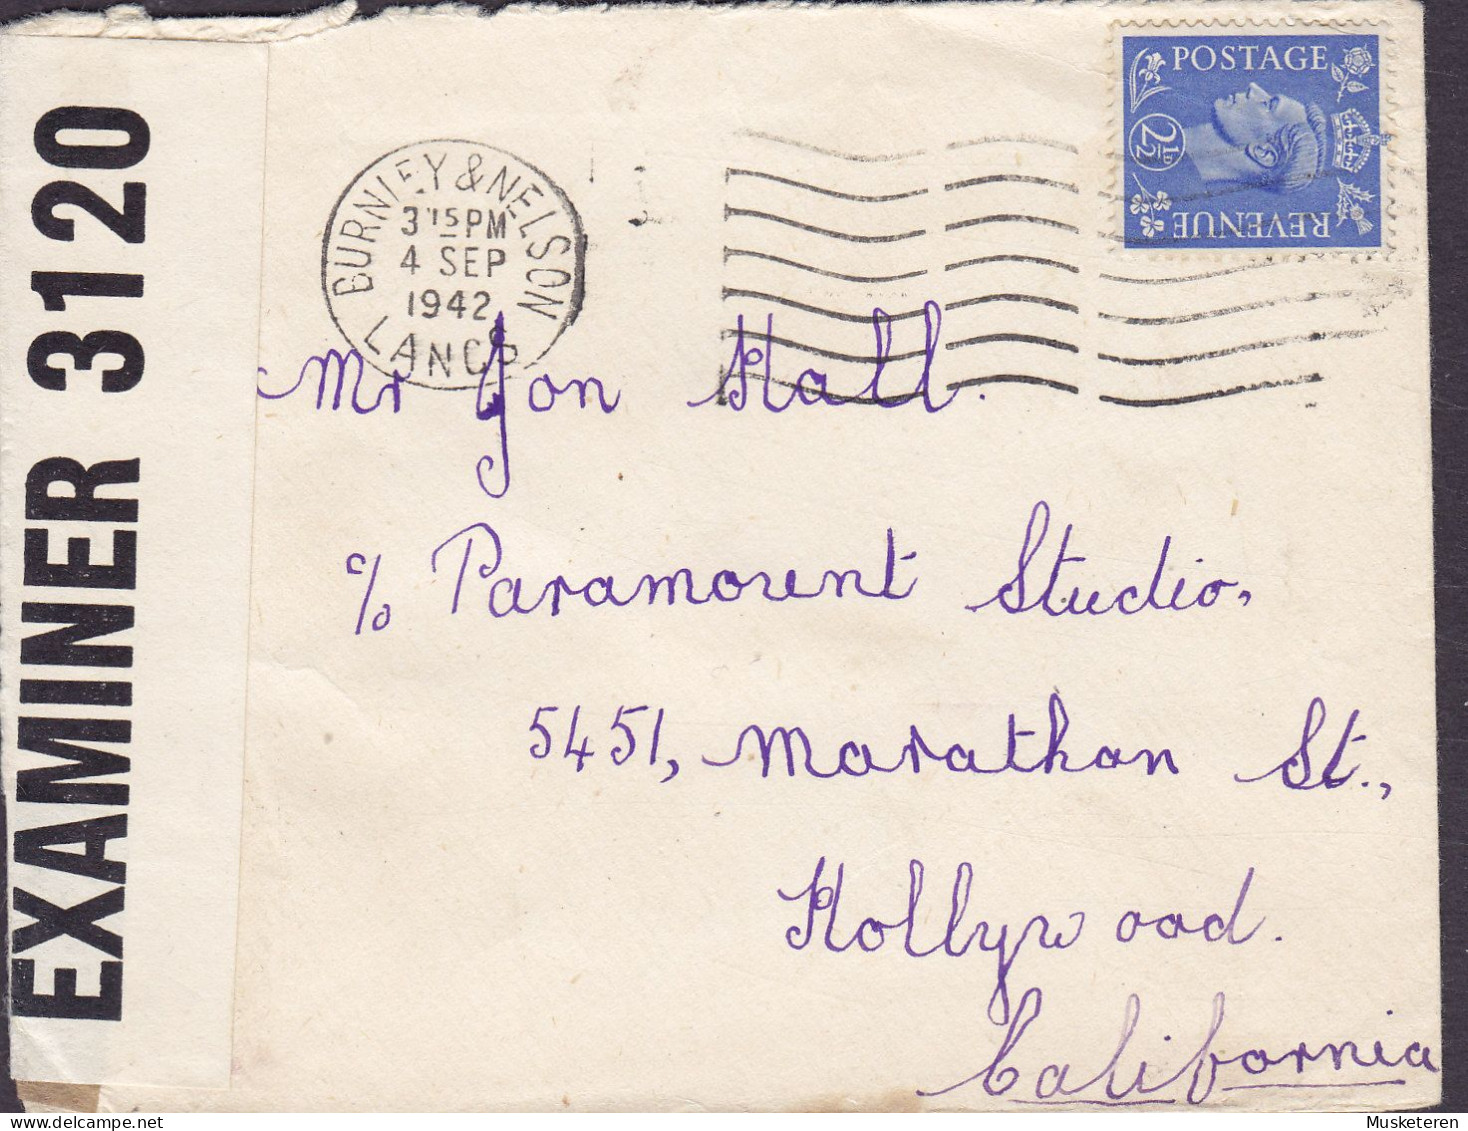 EXAMINER 3120
BURNLEY & NELSON
3 15 PM
4 SEP
1942
LANCS
POSTAGE
2½D
REVENUE
Mr Jon Hall.
c/o Paramount Studio,
5451, Marathon St.,
Hollywood.
California
Musketeren